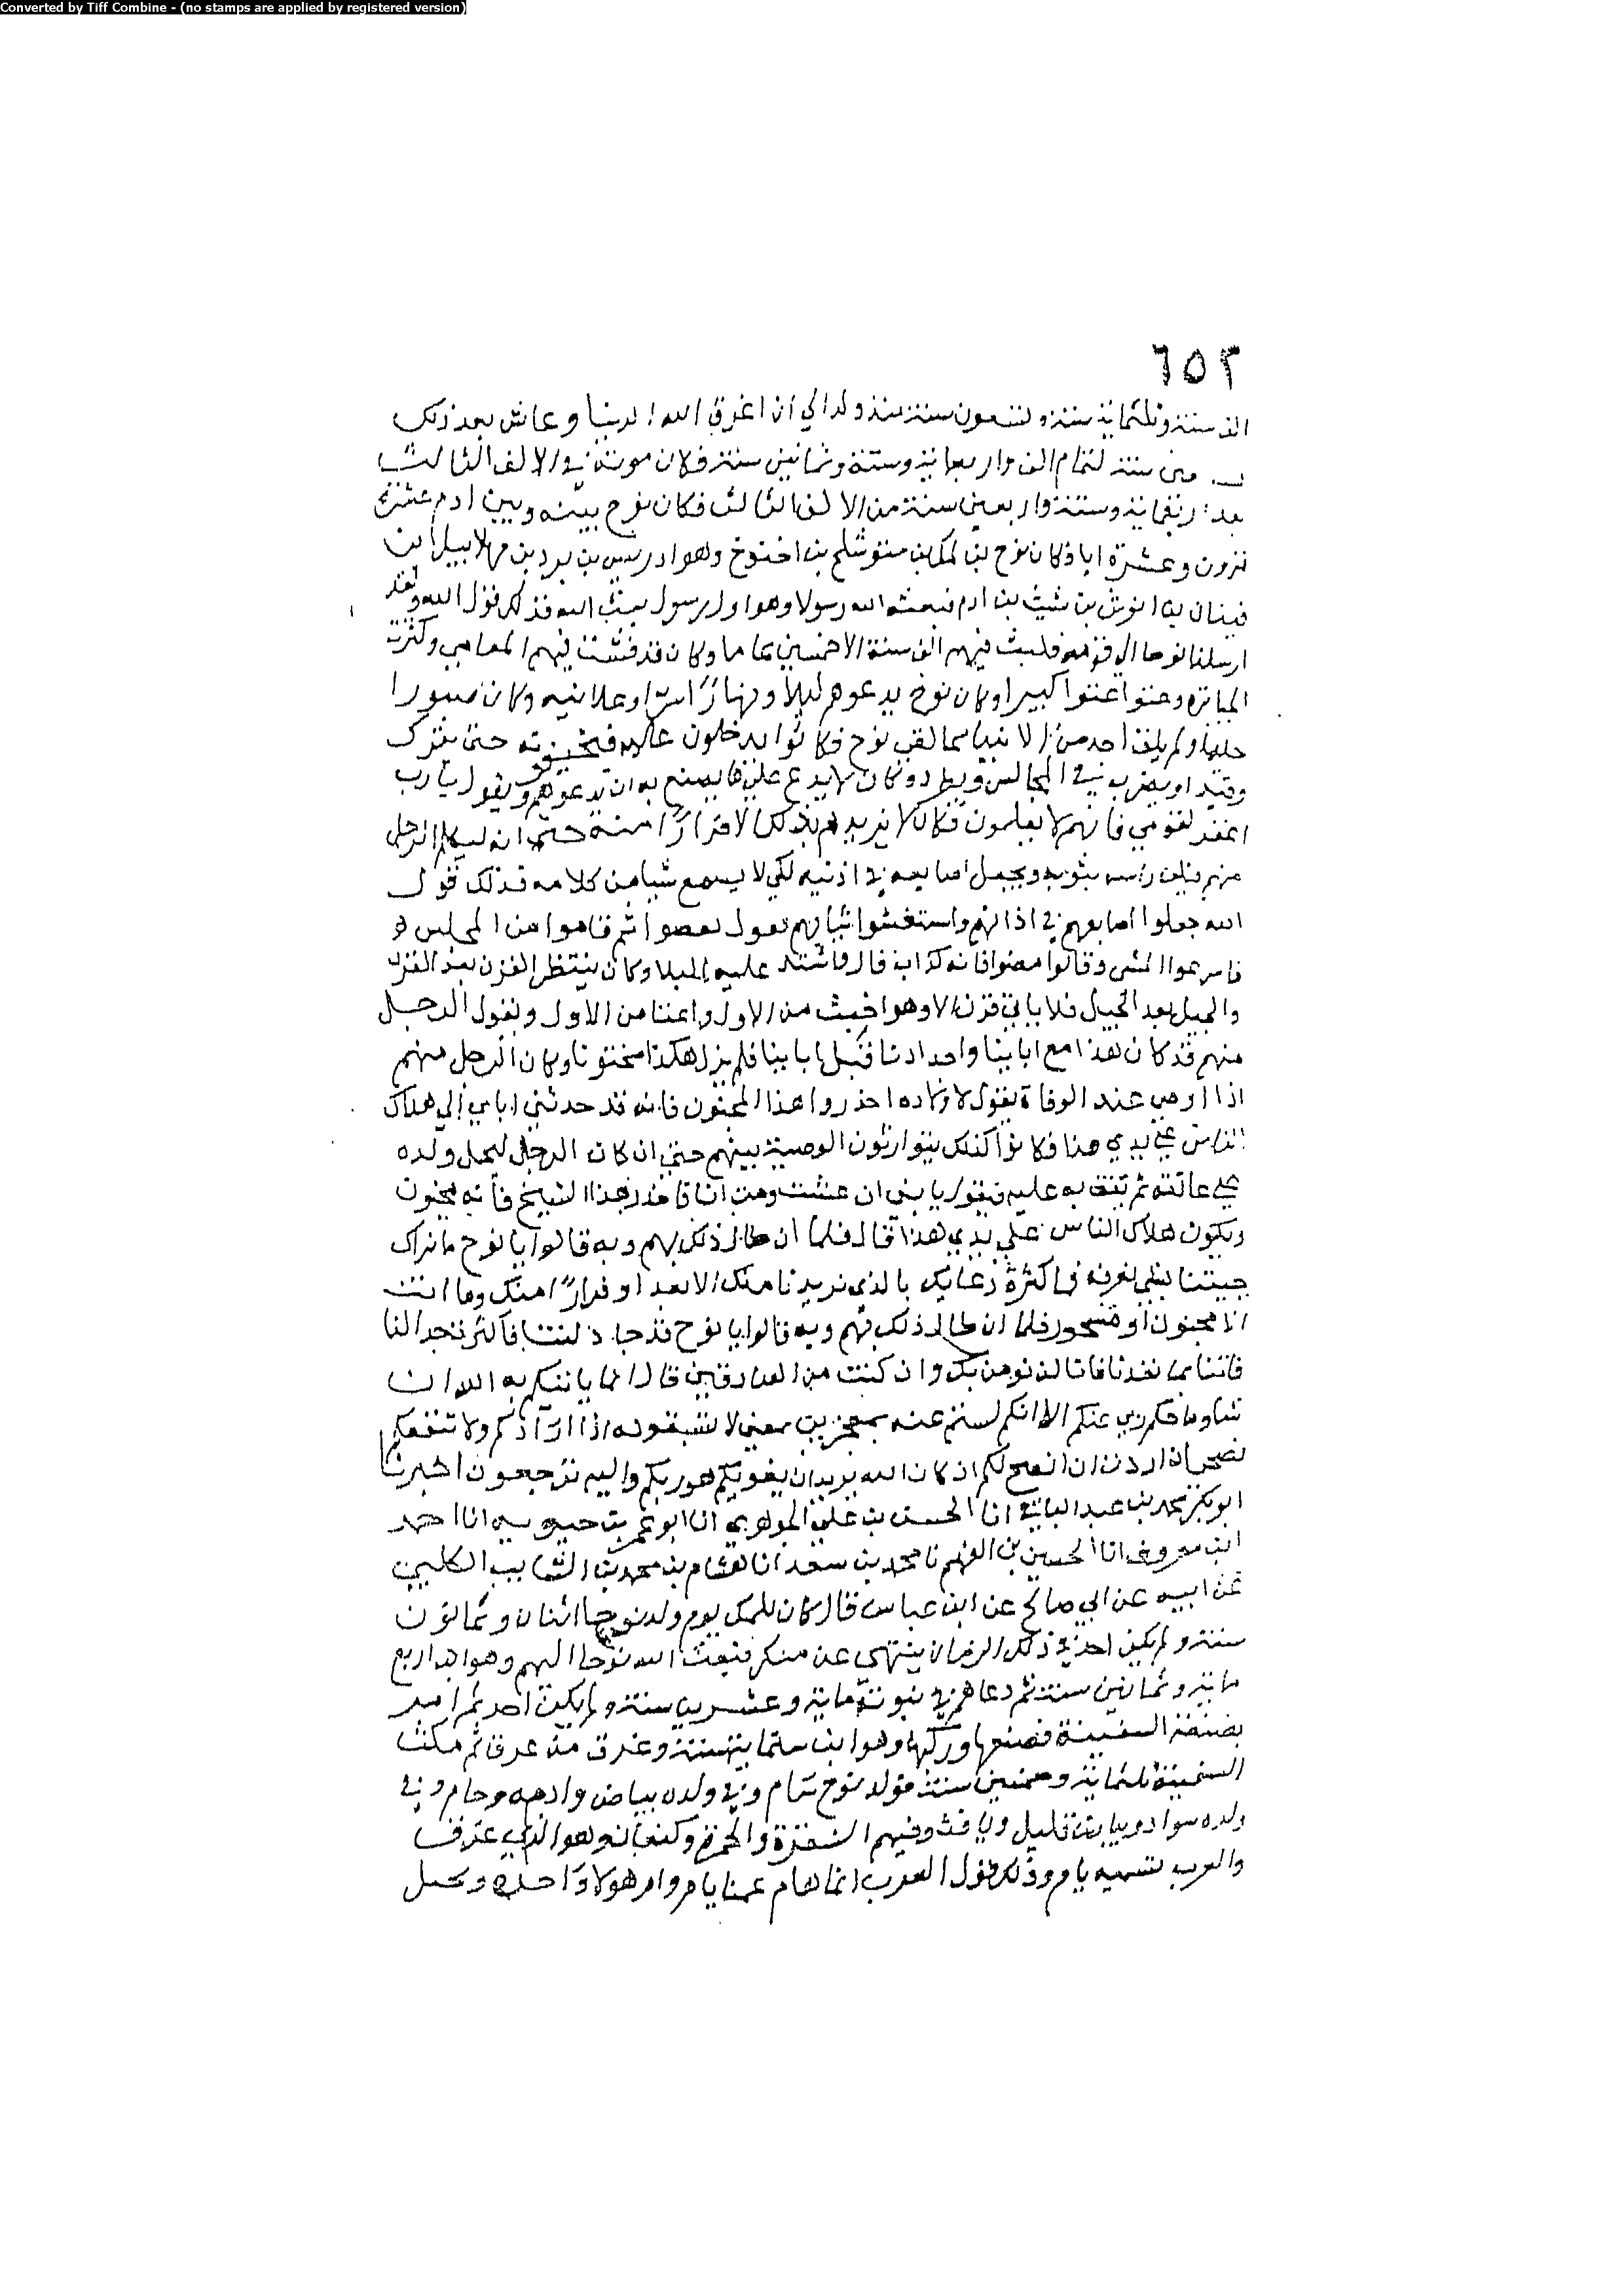 Converted by Tiff Combine - (no stamps are applied by registered version)
٦٥٣
الف سنة وثلثماية سنة وتسعون سنة منذ ولد الي ان اغرق الله الدنيا وعاش بعد ذلك
سنة لتمام الف واربعماية وستة وثمانين سنة فكان موته في الالف الثالث
بعد وستة واربعين سنة من الالف الثالث فكان نوح بينه وبين ادم عشرة
قرون وعشرة ابا وكان نوح بن لمك بن متوشلح بن اخنوخ وهو ادريس بن يرد بن مهلاييل ابن
قينان بن انوش بن شيث بن ادم فبعثه الله رسولا وهو اول رسول بعث الله فذلك قول الله ولقد
ارسلنا نوحا الي قومه فلبث فيهم الف سنة الا خمسين عاما وكان قد فشت فيهم المعاصي وكثرت
الجبابرة وعتوا عتوا كبيرا وكان نوح يدعوهم ليلا ونهارا سرا وعلانيه وكان صبورا
حليما ولم يلق احد من الانبيا ما لقي نوح فكانوا يدخلون عليه فيخنقونه حتى يترك
وقيدا ويضرب في المجالس ويطرد وكان لا يدع علي ما يصنع به ان يدعوهم ويقول يا رب
اغفر لقومي فانهم لا يعلمون فكان لا يزيدهم بذلك الا فرارا منه حتى انه ليكلم الرجل
منهم فيلف راسه بثوبه ويجعل اصابعه في اذنيه لكي لا يسمع شيا من كلامه فذلك قول
الله جعلوا اصابعهم في اذانهم واستغشوا ثيابهم ثم قاموا من المجلس
فاسرعوا المشي وقالوا امضوا فانه كذاب قال واشتد عليه البلا وكان ينتظر القرن بعد القرن
والجيل بعد الجيل فلا ياتي قرن الا وهو اخبث من الاول واعتا من الاول ويقول الرجل
منهم قد كان هذا مع ابائنا واجدادنا فلم يزل هكذا مجنونا وكان الرجل منهم
اذا اوصي عند الوفاة يقول لاولاده احذروا هذا المجنون فانه قد حدثني اباي ان هلاك
الناس علي يدي هذا فكانوا كذلك يتوارثون الوصية بينهم حتي ان كان الرجل ليحمل ولده
علي عاتقه ثم يقف به عليه فيقول يا بني ان عشت ومت انا فاحذر هذا الشيخ فانه مجنون
ويكون هلاك الناس علي يدي هذا قال فلما ان طال ذلك بهم وبه قالوا يا نوح ما نراك
جيتنا بشي نعرفه في كثرة دعايك بالذي تريدنا منك الا بعدا وفرارا منك وما انت
الا مجنون او مسحور فلما ان طال ذلك بهم وبه قالوا يا نوح قد جادلتنا فاكثرت جدالنا
فاتنا بما تعدنا فانا لن نومن بك وان كنت من الصادقين قال انما ياتيكم به الله ان
شا عنكم الا انكم لستم عنه بمعجزين يعني لا تسبقونه اذا ارادكم ولا ينفعكم
نصحي ان اردت ان انصح لكم ان كان الله يريد ان يغويكم هو ربكم واليه ترجعون اخبرنا
ابو بكر محمد بن عبد الباقي انا الحسن بن علي الجوهري انا ابو عمر بن حيويه انا احمد
ابن معروف انا الحسين بن الفهم نا محمد بن سعد انا هشام بن محمد بن السايب الكلبي
عن ابيه عن ابي صالح عن ابن عباس قال كان للمك يوم ولد نوحا اثنان وثمانون
سنة ولم يكن احد في ذلك الزمان ينتهي عن منكر فبعث الله نوحا اليهم وهو ابن اربع
ماية وثمانين سنة ثم دعاهم في نبوته ماية وعشرين سنة ولم يكن احد ثم امر
بصنعة السفينة فصنعها وركبها وهو ابن ستماية سنة وغرق من غرق ثم مكث
السفينة ثلثماية وخمسين سنة فولد نوح سام وفي ولده بياض وادمه وحام وفي
ولده سواد وبياض قليل ويافث وفيهم الشقرة والحمرة وكنعان وهو الذي غرق
والعرب تسميه يام وذلك قول العرب انما هام عمنا يام وام هولا واحده وحمل